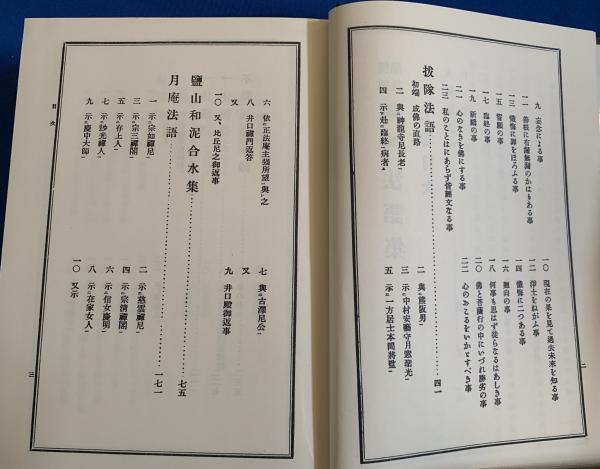 九 妄念による事
一〇 現在の果を見て過去未來を知る事
一一 善根に有漏無漏のかはりある事
一二 淨土をねがふ事
一三 懺悔に罪をほろぶる事
一四 懺悔に二つある事
一五 誓願の事
一六 廻向の事
一七 臨終の事
一八 何事も思はず徒らなるはあしき事
一九 新綱の事
二〇 佛と菩薩行の中にいづれ勝劣の事
二一 心のなりを佛にする事
二二 心のおこるをいかゞすべき事
二三 私のことはにあらず皆經文なる事
拔隊法語……四一
初端 成佛の直路
二 與熊阪男
二 與神龍寺尼長老
三 示中村安藝守月窓聖光
四 示赴臨終病者
五 示一方居士本間將監
二
六 依正法庵主強所望與之
七 與古澤尼公
八 井口禪門返答
又
又
九 井口殿御返事
一〇 又、比丘尼之御返事
鹽山和泥合水集……七五
月庵法語……一七一
一 示宗如禪尼
二 示慈雲禪尼
三 示宗三禪閤
四 示宗濟禪閤
五 示存上人
六 示信女慶明
七 示妙光禪人
八 示在家女人
九 示慶中大師
一〇 又示
目次
三